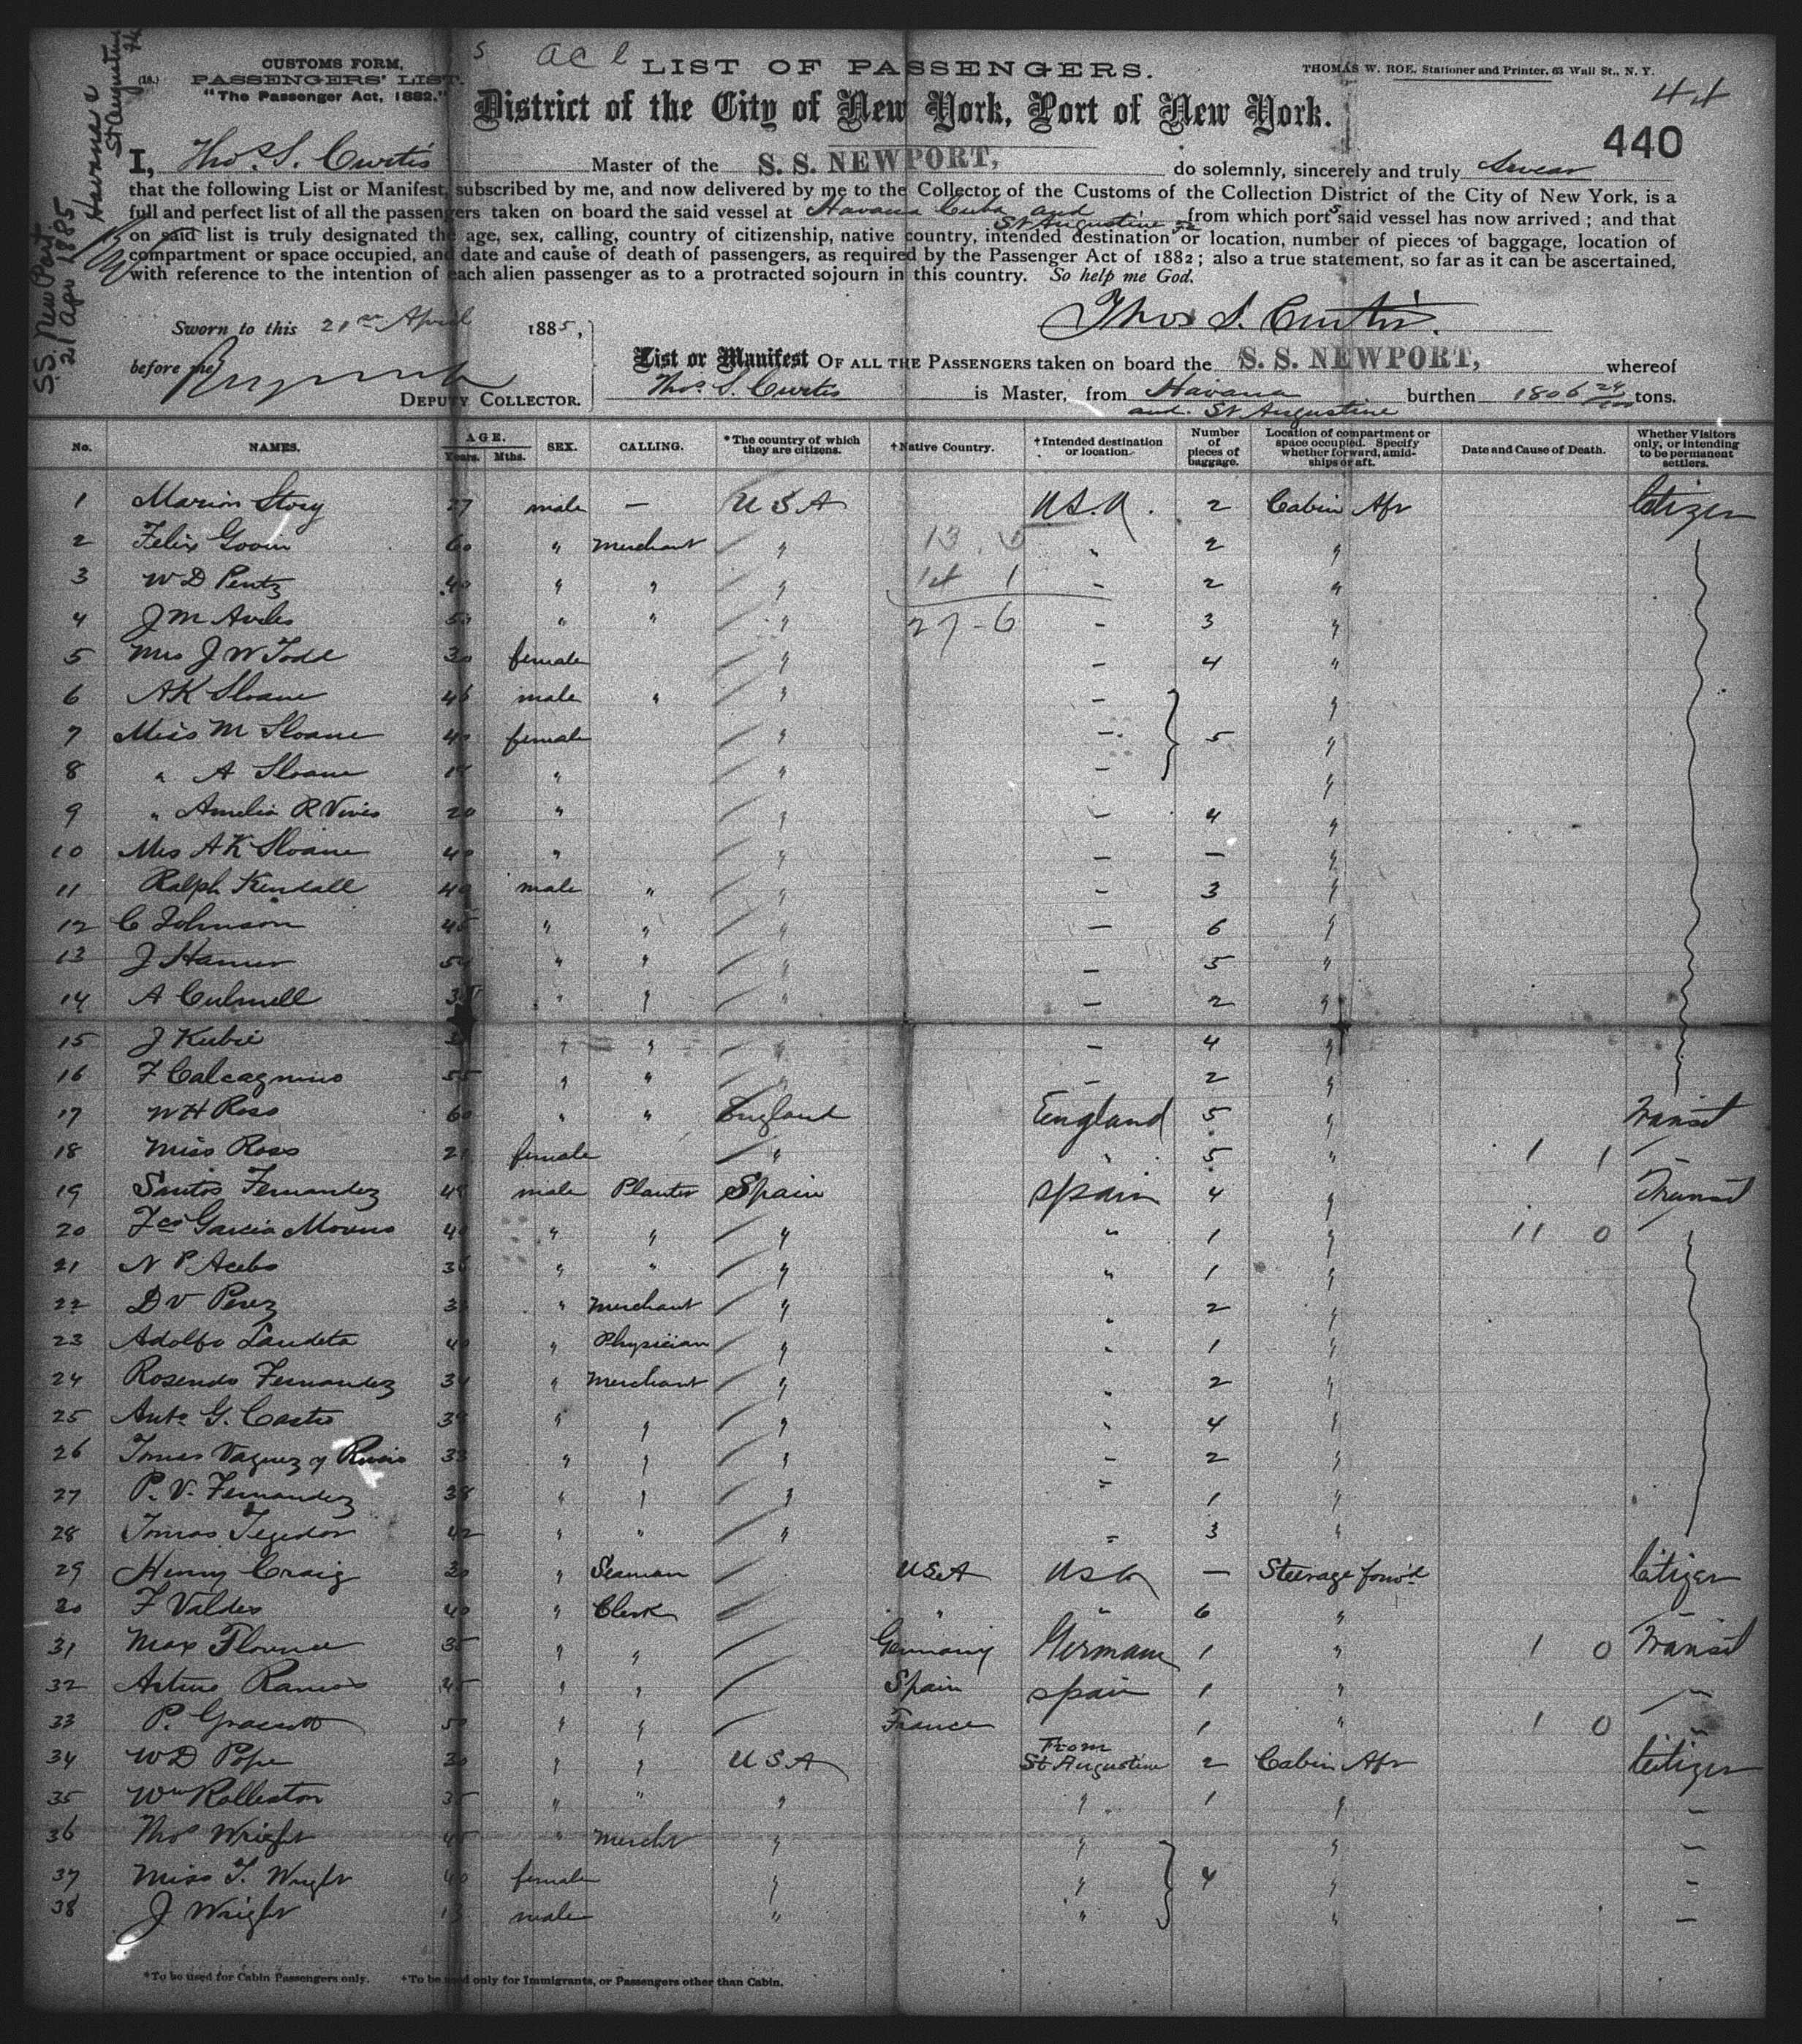 CUSTOMS FORM,
(18.) PASSENGERS' LIST.
"The Passenger Act, 1882."
Havana &
St Augustine
S.S. New Port
21 Apr 1885
LIST OF PASSENGERS.
THOMAS W. ROE, Stationer and Printer, 63 Wall St., N. Y.
44
District of the City of New York, Port of New York.
440
I, Thos. S. Curtis Master of the S. S. NEWPORT, do solemnly, sincerely and truly Swear
that the following List or Manifest, subscribed by me, and now delivered by me to the Collector of the Customs of the Collection District of the City of New York, is a
full and perfect list of all the passengers taken on board the said vessel at Havana Cuba and St Augustine Fla from which ports said vessel has now arrived; and that
on said list is truly designated the age, sex, calling, country of citizenship, native country, intended destination or location, number of pieces of baggage, location of
compartment or space occupied, and date and cause of death of passengers, as required by the Passenger Act of 1882; also a true statement, so far as it can be ascertained,
with reference to the intention of each alien passenger as to a protracted sojourn in this country. So help me God.
Thos S. Curtis.
Sworn to this 21st April 1885,
before me
DEPUTY COLLECTOR.
List or Manifest OF ALL THE PASSENGERS taken on board the S. S. NEWPORT, whereof
Thos. S. Curtis is Master, from Havana and St Augustine burthen 1806 24/100 tons.
No. NAMES. AGE. Years. Mths. SEX. CALLING. *The country of which they are citizens. †Native Country. †Intended destination or location. Number of pieces of baggage. Location of compartment or space occupied. Specify whether forward, amidships or aft. Date and Cause of Death. Whether Visitors only, or intending to be permanent settlers.
1 Marion Story 27 male — U S A U.S.A. 2 Cabin Aft Citizen
2 Felix Govin 60 " Merchant " 13 6 " 2 "
3 W D Pentz 40 " " " 14 1 – 2 "
4 J M Aviles 50 " " " 27 - 6 – 3 "
5 Mrs J W Todd 30 female " – 4 "
6 A K Sloane 46 male " " – "
7 Miss M Sloane 40 female " – 5 "
8 " A Sloane " " – "
9 " Amelia R Vives 20 " " – 4 "
10 Mrs A K Sloane 40 " " – — "
11 Ralph Kendall 40 male " " – 3 "
12 C Johnson 45 " " " – 6 "
13 J Hamer " " " – 5 "
14 A Culmell 35 " " " – 2 "
15 J Kubie " " " – 4 "
16 F Calcagnino 55 " " " – 2 "
17 W H Ross 60 " " England England 5 " Transit
18 Miss Ross female " " 5 " 1 1
19 Santos Fernandez male Planter Spain Spain 4 " Transit
20 Fco Garcia Moreno 40 " " " " 1 " 11 0
21 N P Acebo 36 " " " " 1 "
22 D V Perez " Merchant " " 2 "
23 Adolfo Landeta 40 " Physician " " 1 "
24 Rosendo Fernandez " Merchant " " 2 "
25 Anto G. Castro " " " " 4 "
26 Tomas Vaquez y 33 " " " – 2 "
27 P. V. Fernandez 38 " " " – 1 "
28 Tomas Tegedor 42 " " " – 3 "
29 Henry Craig 30 " Seaman U S A U S A — Steerage forw'd Citizen
30 F Valdes 40 " Clerk " " 6 "
31 Max Florence 35 " " Germany Germany 1 " 1 0 Transit
32 Arturo Ramos 45 " " Spain Spain 1 " –
33 P. 50 " " France 1 " 1 0 –
34 W D Pope 30 " " U S A From St Augustine 2 Cabin Aft Citizen
35 Wm Rolleston 35 " " " " 1 " –
36 Thos Wright 45 " Mercht " " " –
37 Miss T. Wright 40 female " " 4 " –
38 J Wright 13 male " " " –
*To be used for Cabin Passengers only. †To be used only for Immigrants, or Passengers other than Cabin.